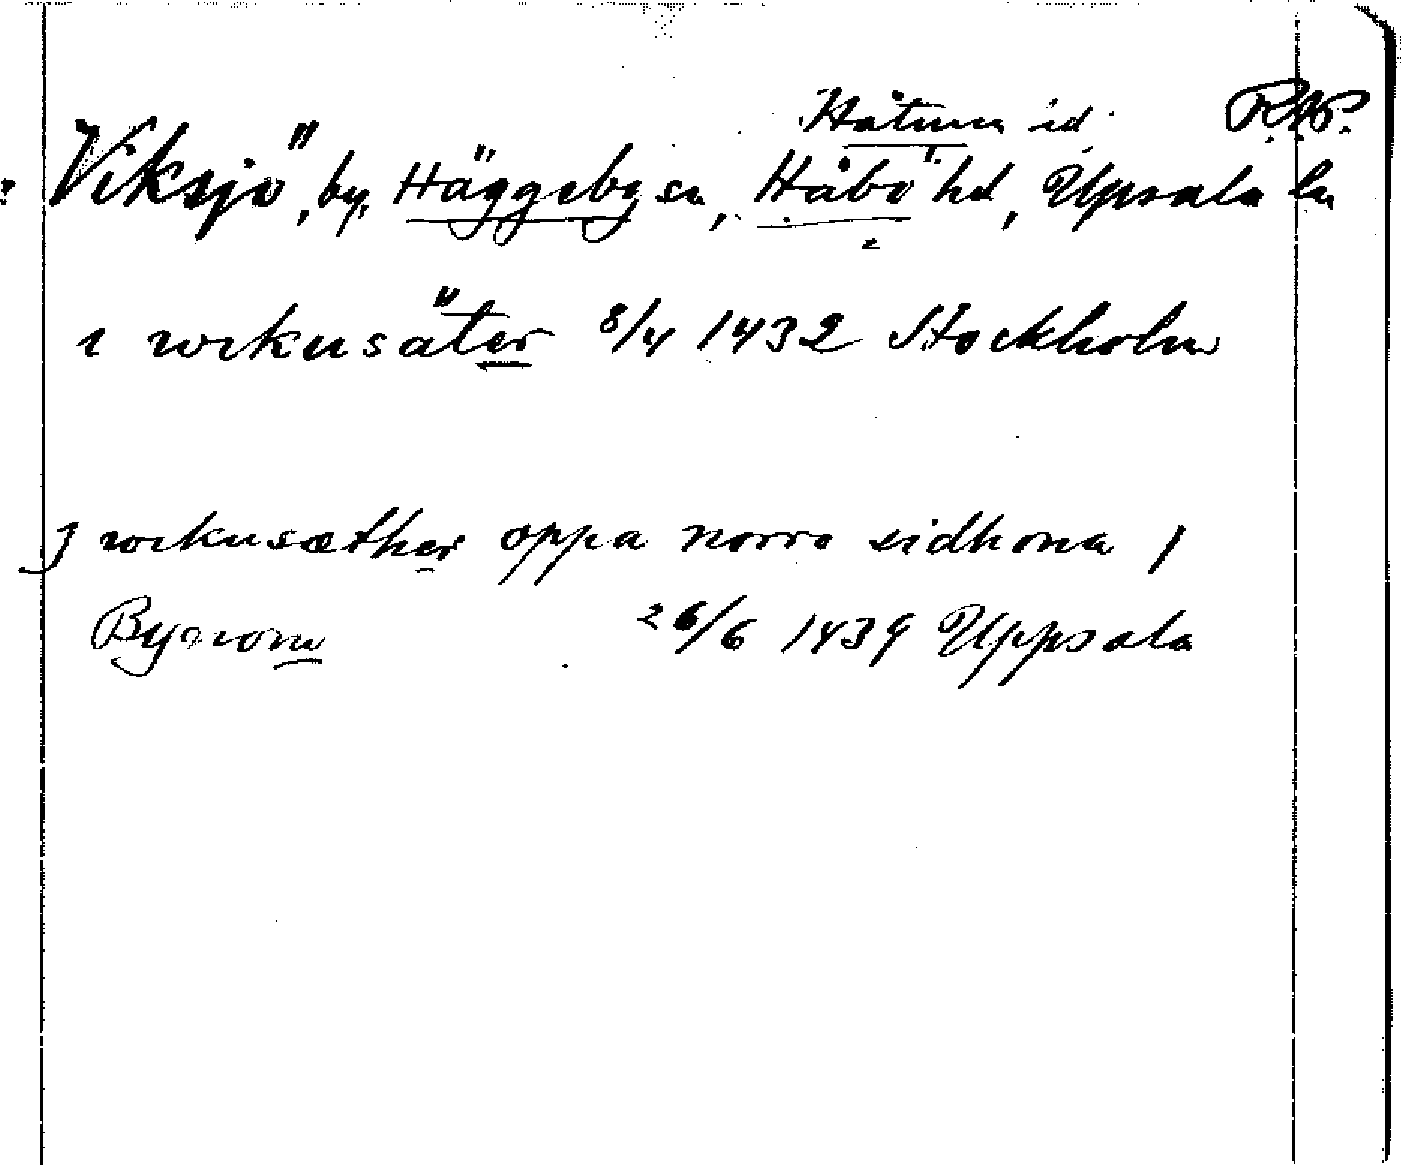 Håtuna td. RAP.
Viksjö, by, Häggeby sn, Håbo hd, Upsala ln
i wikusäter 8/4 1432 Stockholm
J wikusæther oppa norro sidhona j
Byenom 26/6 1439 Uppsala